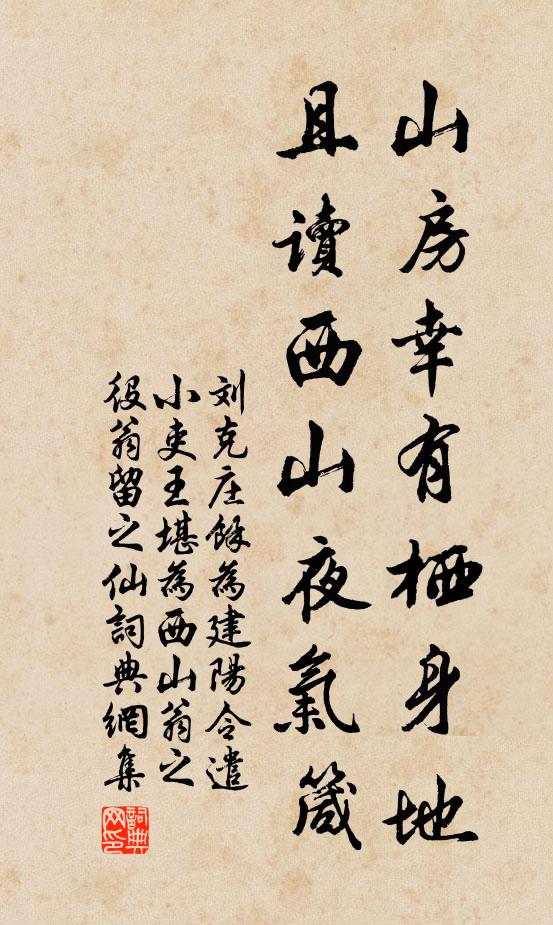 山房幸有栖身地
且讀西山夜氣箴
刘克庄餘為建陽令遣
小吏王堪為西山翁之
役翁留之仙詞典網集
詞典网印